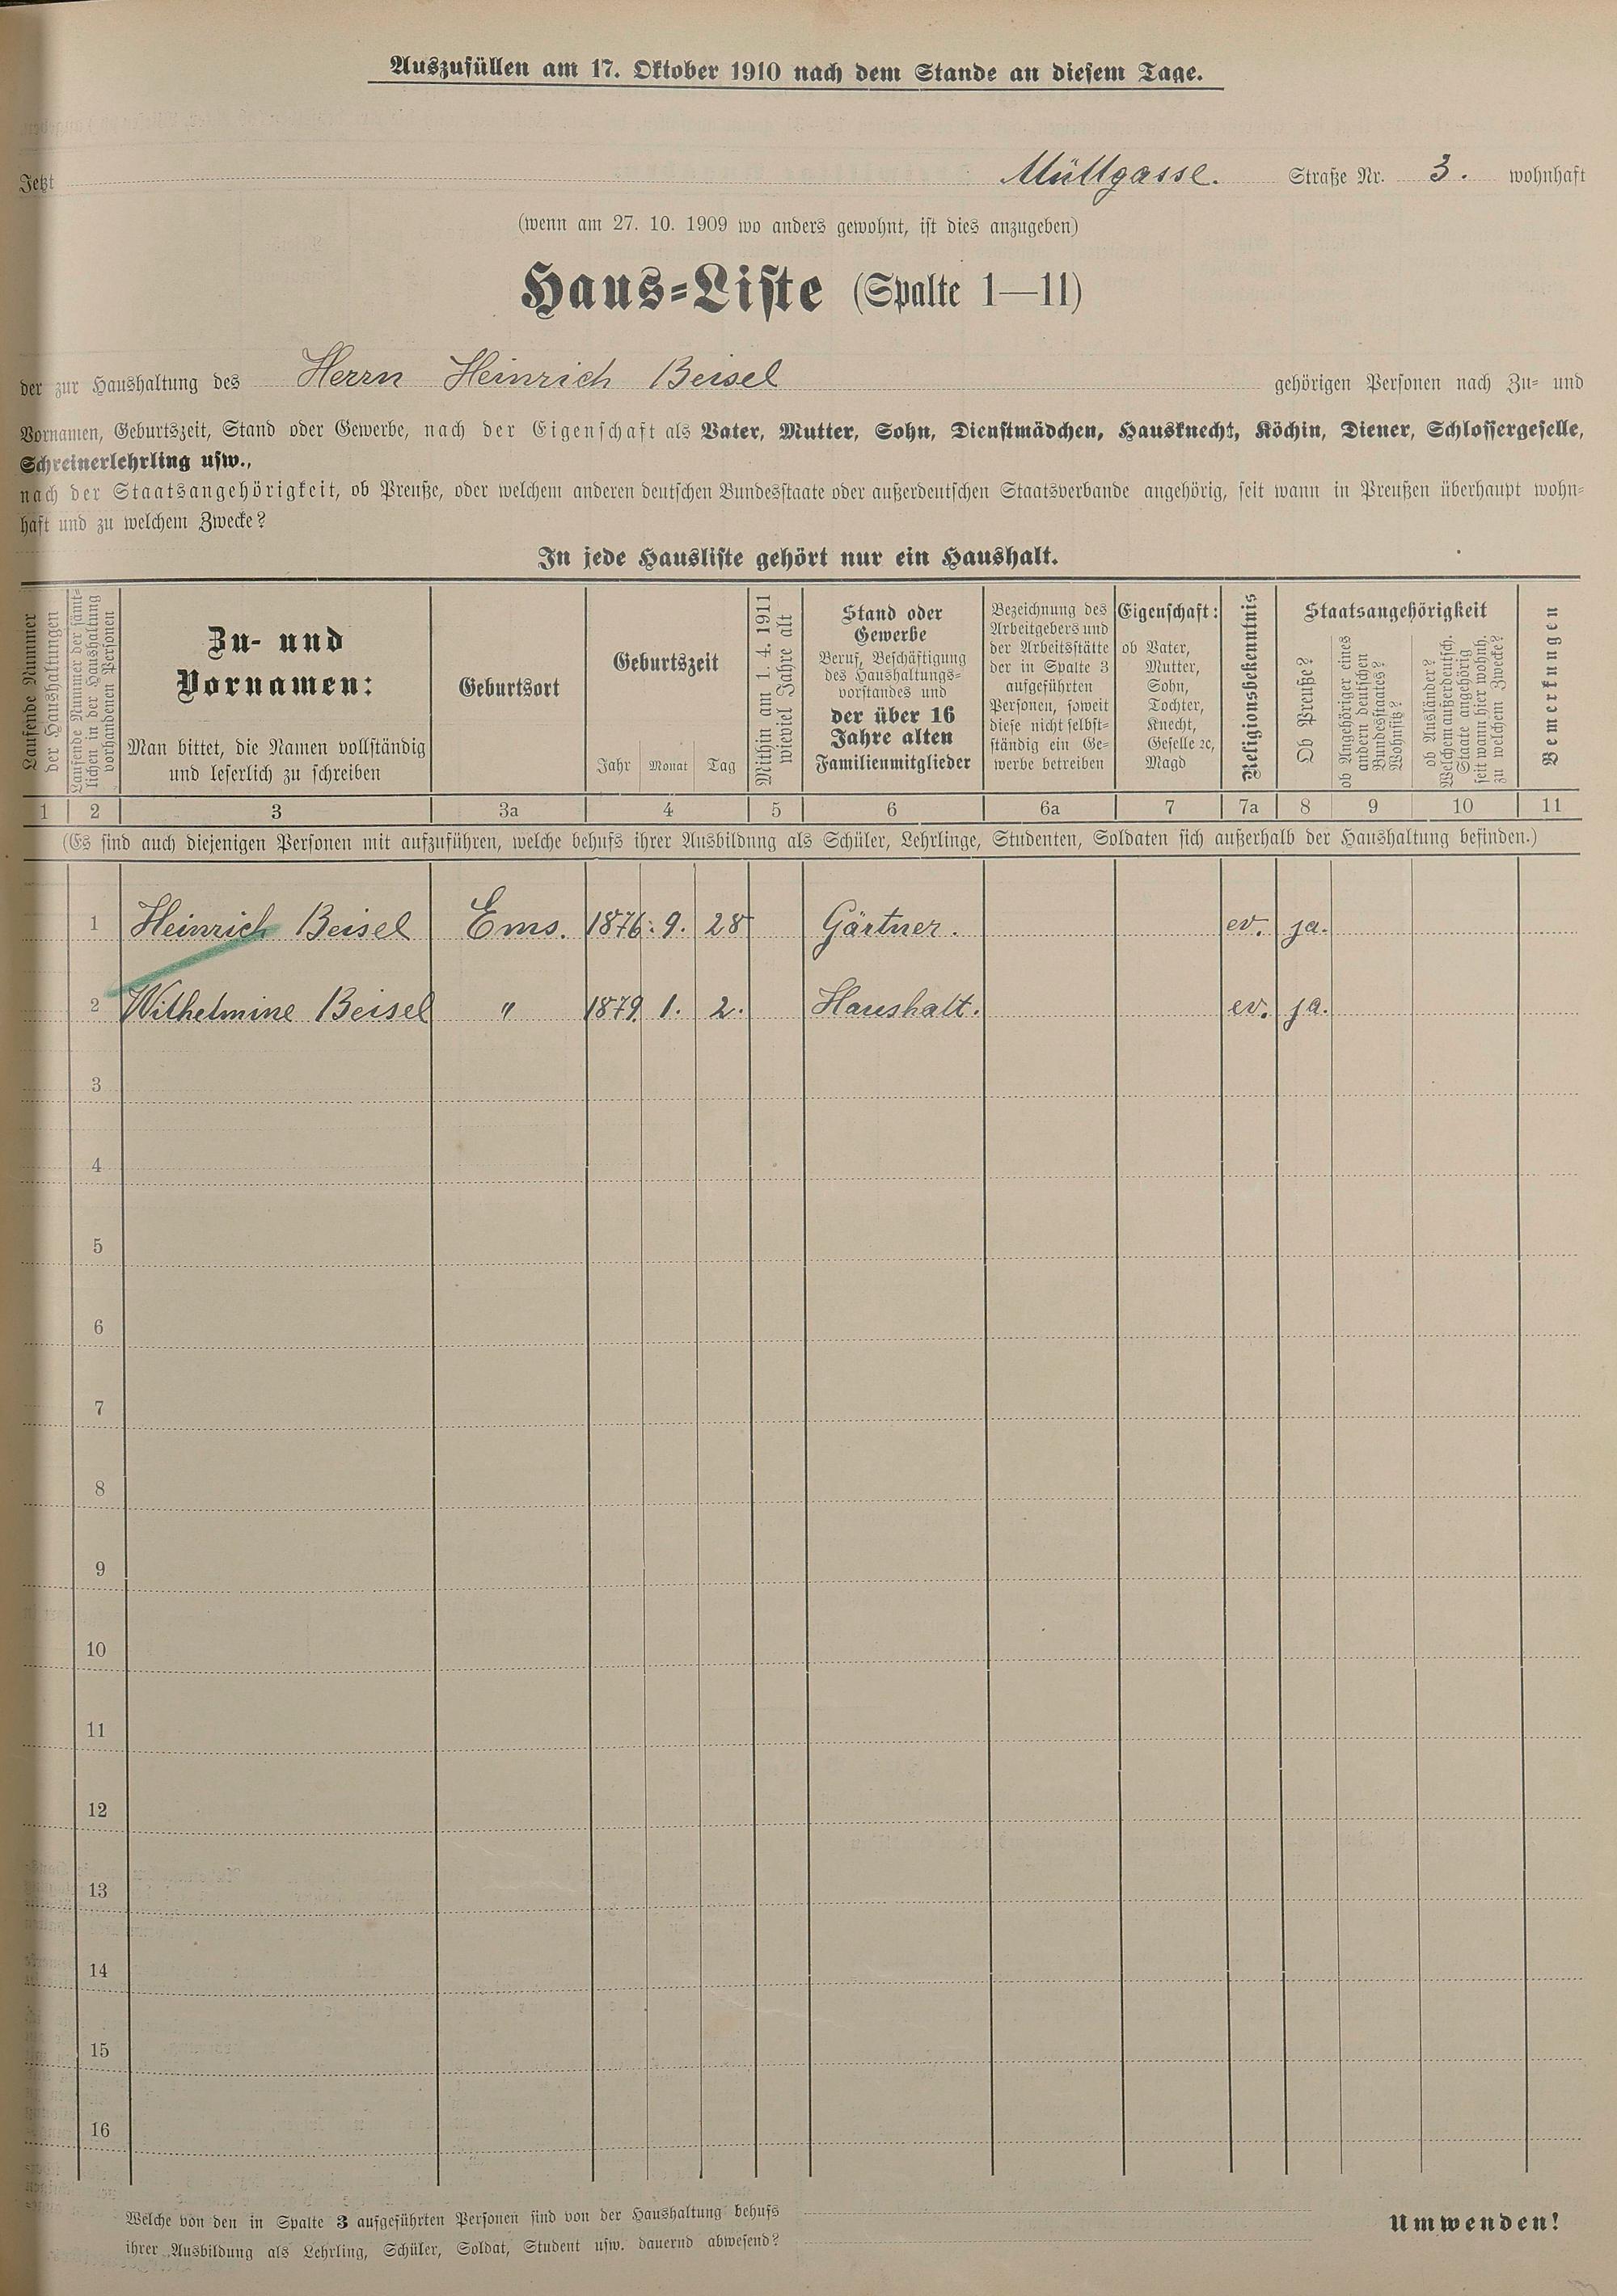 Auszufüllen am 17. Oktober 1910 nach dem Stande an diesem Tage.
Jetzt Müllgasse. Straße Nr. 3. wohnhaft
(wenn am 27. 10. 1909 wo anders gewohnt, ist dies anzugeben)
Haus-Liste (Spalte 1—11)
der zur Haushaltung des Herrn Heinrich Beisel gehörigen Personen nach Zu- und
Vornamen, Geburtszeit, Stand oder Gewerbe, nach der Eigenschaft als Vater, Mutter, Sohn, Dienstmädchen, Hausknecht, Köchin, Diener, Schlossergeselle,
Schreinerlehrling usw.,
nach der Staatsangehörigkeit, ob Preuße, oder welchem anderen deutschen Bundesstaate oder außerdeutschen Staatsverbande angehörig, seit wann in Preußen überhaupt wohn-
haft und zu welchem Zwecke?
In jede Hausliste gehört nur ein Haushalt.
Laufende Nummer
der Haushaltungen
Laufende Nummer der sämt-
lichen in der Haushaltung
vorhandenen Personen
Zu- und
Vornamen:
Man bittet, die Namen vollständig
und leserlich zu schreiben
Geburtsort
Geburtszeit
Jahr Monat Tag
Mithin am 1. 4. 1911
wieviel Jahre alt
Stand oder
Gewerbe
Beruf, Beschäftigung
des Haushaltungs-
vorstandes und
der über 16
Jahre alten
Familienmitglieder
Bezeichnung des
Arbeitgebers und
der Arbeitsstätte
der in Spalte 3
aufgeführten
Personen, soweit
diese nicht selbst-
ständig ein Ge-
werbe betreiben
Eigenschaft:
ob Vater,
Mutter,
Sohn,
Tochter,
Knecht,
Geselle ꝛc,
Magd
Religionsbekenntnis
Staatsangehörigkeit
Ob Preuße?
ob Angehöriger eines
andern deutschen
Bundesstaates?
Wohnsitz?
ob Ausländer?
Welchem außerdeutsch.
Staate angehörig
seit wann hier wohnh.
zu welchem Zwecke?
Bemerkungen
1 2 3 3a 4 5 6 6a 7 7a 8 9 10 11
(Es sind auch diejenigen Personen mit aufzuführen, welche behufs ihrer Ausbildung als Schüler, Lehrlinge, Studenten, Soldaten sich außerhalb der Haushaltung befinden.)
1 Heinrich Beisel Ems. 1876. 9. 28 Gärtner. ev. ja.
2 Wilhelmine Beisel " 1879. 1. 2. Haushalt. ev. ja.
3
4
5
6
7
8
9
10
11
12
13
14
15
16
Welche von den in Spalte 3 aufgeführten Personen sind von der Haushaltung behufs
ihrer Ausbildung als Lehrling, Schüler, Soldat, Student usw. dauernd abwesend?
Umwenden!